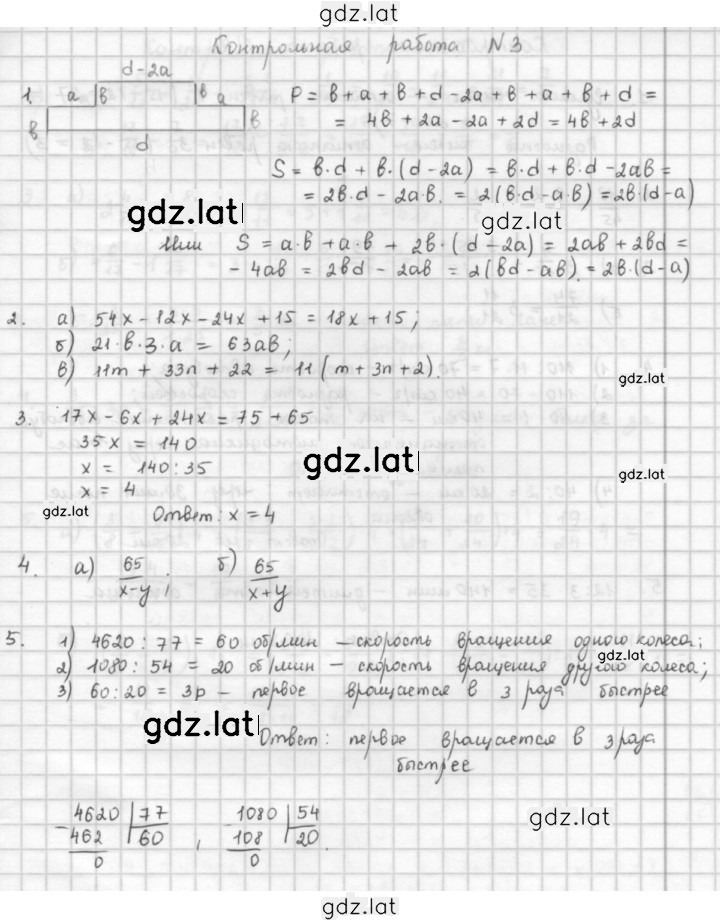 gdz.lat
Контрольная работа N 3
d-2a
1. a в в a P = в+a+в+d-2a+в+a+в+d =
в в = 4в+2a-2a+2d = 4в+2d
d
S = в·d + в·(d-2a) = в·d + в·d - 2aв =
= 2в·d - 2a·в. = 2(в·d-a·в) = 2в·(d-a)
gdz.lat gdz.lat
Или S = a·в + a·в + 2в·(d-2a) = 2aв + 2вd =
- 4aв = 2вd - 2aв = 2(вd-aв). = 2в·(d-a)
2. а) 54x-12x-24x+15 = 18x+15;
б) 21·в·3·a = 63aв;
в) 11m + 33n + 22 = 11(m+3n+2).
gdz.lat
3. 17x-6x+24x = 75+65
35x = 140
x = 140:35
gdz.lat gdz.lat
x = 4
gdz.lat Ответ: x = 4
4. а) 65/(x-y); б) 65/(x+y)
5. 1) 4620:77 = 60 об/мин – скорость вращения одного колеса;
gdz.lat
2) 1080:54 = 20 об/мин – скорость вращения другого колеса;
3) 60:20 = 3р – первое вращается в 3 раза быстрее
gdz.lat
Ответ: первое вращается в 3 раза
быстрее
4620 | 77 1080 | 54
- 462 60 , - 108 20.
0 0
gdz.lat
gdz.lat